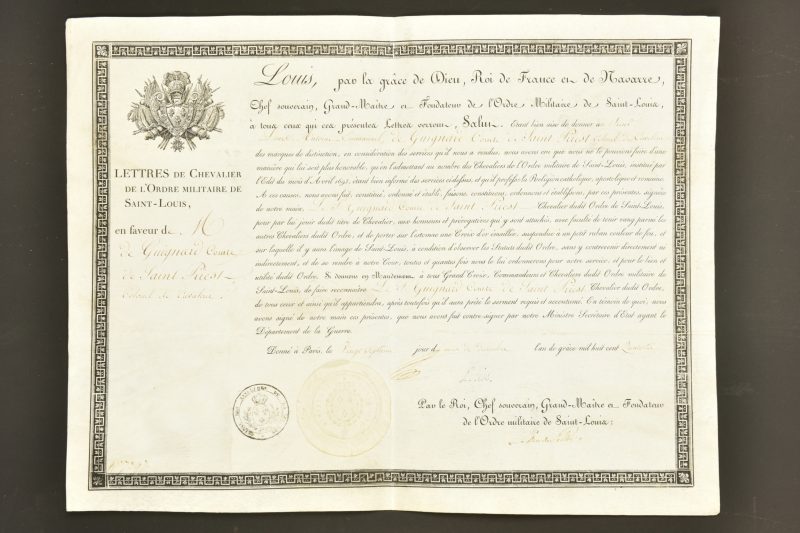 LETTRES DE CHEVALIER
DE L'ORDRE MILITAIRE DE
SAINT-LOUIS,
en faveur de M
de Guignard Comte
de Saint Priest
Colonel de Cavalerie
Louis, par la grâce de Dieu, Roi de France et de Navarre,
Chef souverain, Grand-Maître et Fondateur de l'Ordre Militaire de Saint-Louis,
à tous ceux qui ces présentes Lettres verront, Salut. Étant bien aise de donner à
Emmanuel de Guignard Comte de Saint Priest Colonel de Cavalerie
des marques de distinction, en considération des services qu'il nous a rendus, nous avons cru que nous ne le pouvions faire d'une
manière qui lui soit plus honorable, qu'en l'admettant au nombre des Chevaliers de l'Ordre militaire de Saint-Louis, institué par
l'Édit du mois d'Avril 1693, étant bien informé des services ci-dessus, et qu'il professe la Religion catholique, apostolique et romaine.
A ces causes, nous avons fait, constitué, ordonné et établi, faisons, constituons, ordonnons et établissons, par ces présentes, signées
de notre main, Le S. Guignard Comte de Saint Priest Chevalier dudit Ordre de Saint-Louis,
pour par lui jouir dudit titre de Chevalier, aux honneurs et prérogatives qui y sont attachés, avec faculté de tenir rang parmi les
autres Chevaliers dudit Ordre, et de porter sur l'estomac une Croix d'or émaillée, suspendue à un petit ruban couleur de feu, et
sur laquelle il y aura l'image de Saint-Louis, à condition d'observer les Statuts dudit Ordre, sans y contrevenir directement ni
indirectement, et de se rendre à notre Cour, toutes et quantes fois nous le lui ordonnerons pour notre service, et pour le bien et
utilité dudit Ordre. Si donnons en Mandement à tous Grand'Croix, Commandeurs et Chevaliers dudit Ordre militaire de
Saint-Louis, de faire reconnaître Le S. Guignard Comte de Saint Priest Chevalier dudit Ordre,
de tous ceux et ainsi qu'il appartiendra, après toutefois qu'il aura prêté le serment requis et accoutumé. En témoin de quoi, nous
avons signé de notre main ces présentes, que nous avons fait contre-signer par notre Ministre Secrétaire d'État ayant le
Département de la Guerre.
Donné à Paris, le Vingt septième jour du mois de l'an de grâce mil huit cent Quatorze
Louis
Par le Roi, Chef souverain, Grand-Maître et Fondateur
de l'Ordre militaire de Saint-Louis: